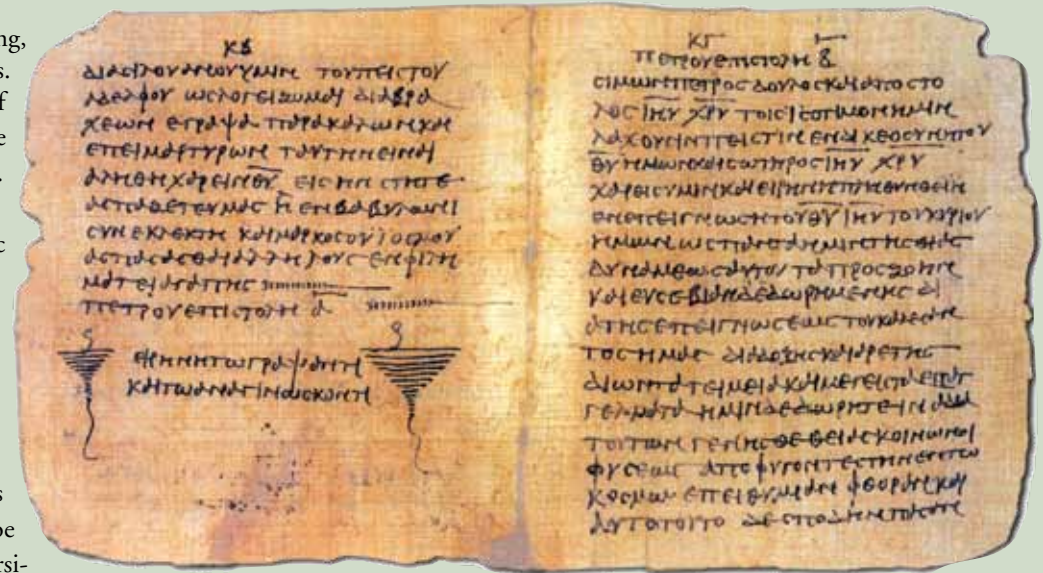 ng,
s.
f
e
.
c
s
oe
rsi-
ΚΒ
ΔΙΑϹΙΛΟΥΑΝΟΥΥΜΙΝ ΤΟΥΠΕΙϹΤΟΥ
ΑΔΕΛΦΟΥ ΩϹΛΟΓΕΙΖΟΜΑΙ ΔΙΑΒΡΑ
ΧΕΩΝ ΕΓΡΑΨΑ ΠΑΡΑΚΑΛΩΝΚΑΙ
ΕΠΕΙΜΑΡΤΥΡΩΝ ΤΑΥΤΗΝΕΙΝΑΙ
ΑΛΗΘΗΧΑΡΕΙΝΘ̅Υ̅ ΕΙϹΗΝ ϹΤΗΤΕ
ΑϹΠΑΖΕΤΕΥΜΑϹ Η ΕΝΒΑΒΥΛΩΝΙ
ϹΥΝΕΚΛΕΚΤΗ ΚΑΙΜΑΡΚΟϹΟΥΙΟϹΜΟΥ
ΑϹΠΑϹΑϹΘΑΙΑΛΛΗΛΟΥϹ ΕΝΦΙΛΗ
ΜΑΤΕΙΑΓΑΠΗϹ
ΠΕΤΡΟΥΕΠΙϹΤΟΛΗ Α̅
ΕΙΡΗΝΗΤΩΓΡΑΨΑΝΤΙ
ΚΑΙΤΩΑΝΑΓΙΝΩϹΚΟΝΤΙ
ΚΓ
ΠΕΤΡΟΥΕΠΙϹΤΟΛΗ Β̅
ϹΙΜΩΝΠΕΤΡΟϹ ΔΟΥΛΟϹΚΑΙΑΠΟϹΤΟ
ΛΟϹ Ι̅Η̅Υ̅ Χ̅Ρ̅Υ̅ ΤΟΙϹΙϹΟΤΙΜΟΝΗΜΙΝ
ΛΑΧΟΥϹΙΝΠΕΙϹΤΙΝ ΕΝΔΙΚΕΟϹΥΝΗΤΟΥ
Θ̅Υ̅ ΗΜΩΝΚΑΙϹΩΤΗΡΟϹ Ι̅Η̅Υ̅ Χ̅Ρ̅Υ̅
ΧΑΡΕΙϹΥΜΙΝΚΑΙΕΙΡΗΝΗΠΛΗΘΥΝΘΕΙΗ
ΕΝΕΠΕΙΓΝΩϹΗΤΟΥΘ̅Υ̅ Ι̅Η̅Υ̅ ΤΟΥΚΥΡΙΟΥ
ΗΜΩΝ ΩϹΠΑΝΤΑΗΜΙΝΤΗϹΘΙΑϹ
ΔΥΝΑΜΕΩϹΑΥΤΟΥ ΤΑΠΡΟϹΖΩΗΝ
ΚΑΙΕΥϹΕΒΙΑΝΔΕΔΩΡΗΜΕΝΗϹ ΔΙ
ΑΤΗϹΕΠΕΙΓΝΩϹΕΩϹΤΟΥΚΑΛΕϹΑΝ
ΤΟϹΗΜΑϹ ΔΙΑΔΟΞΗϹΚΑΙΑΡΕΤΗϹ
ΔΙΩΝΤΑΤΕΙΜΕΙΑΚΑΙΜΕΓΕΙϹΤΑΕΠΑΓ
ΓΕΛΜΑΤΑ ΗΜΙΝΔΕΔΩΡΗΤΕΙΝΑΔΙΑ
ΤΟΙΤΩΝ ΓΕΝΗϹΘΕ ΘΕΙΑϹ ΚΟΙΝΩΝΟΙ
ΦΥϹΕΩϹ ΑΠΟΦΥΓΟΝΤΕϹΤΗΝΕΝΤΩ
ΚΟϹΜΩ ΕΠΕΙΘΥΜΙΑΝ ΦΘΟΡΑΝ ΚΑΙ
ΑΥΤΟΤΟΥΤΟ ΔΕ ϹΠΟΔΗΝΠΑϹΑΝ